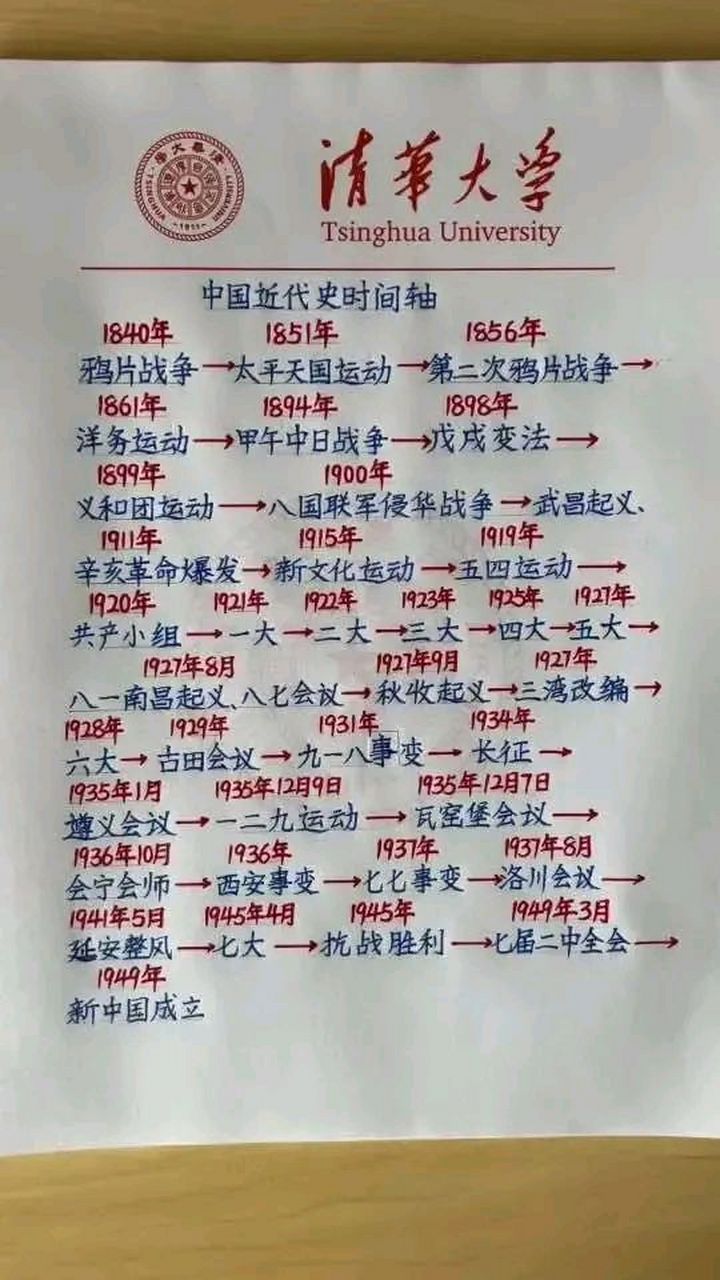 清華大学
Tsinghua University
TSINGHUA UNIVERSITY
-1911-
中国近代史时间轴
1840年 1851年 1856年
鸦片战争→太平天国运动→第二次鸦片战争→
1861年 1894年 1898年
洋务运动→甲午中日战争→戊戌变法→
1899年 1900年
义和团运动→八国联军侵华战争→武昌起义、
1911年 1915年 1919年
辛亥革命爆发→新文化运动→五四运动→
1920年 1921年 1922年 1923年 1925年 1927年
共产小组→一大→二大→三大→四大→五大→
1927年8月 1927年9月 1927年
八一南昌起义、八七会议→秋收起义→三湾改编→
1928年 1929年 1931年 1934年
六大→古田会议→九一八事变→长征→
1935年1月 1935年12月9日 1935年12月7日
遵义会议→一二九运动→瓦窑堡会议→
1936年10月 1936年 1937年 1937年8月
会宁会师→西安事变→七七事变→洛川会议→
1941年5月 1945年4月 1945年 1949年3月
延安整风→七大→抗战胜利→七届二中全会→
1949年
新中国成立